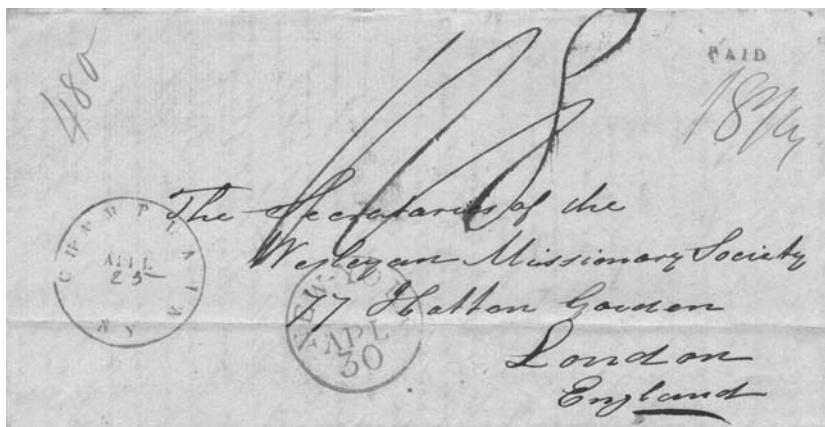 480
PAID
18 3/4
1/8
CHAMPLAIN NY
APL
25
The Secretaries of the
Wesleyan Missionary Society
77 Hatton Garden
London
England
NEW-YORK
APL
30